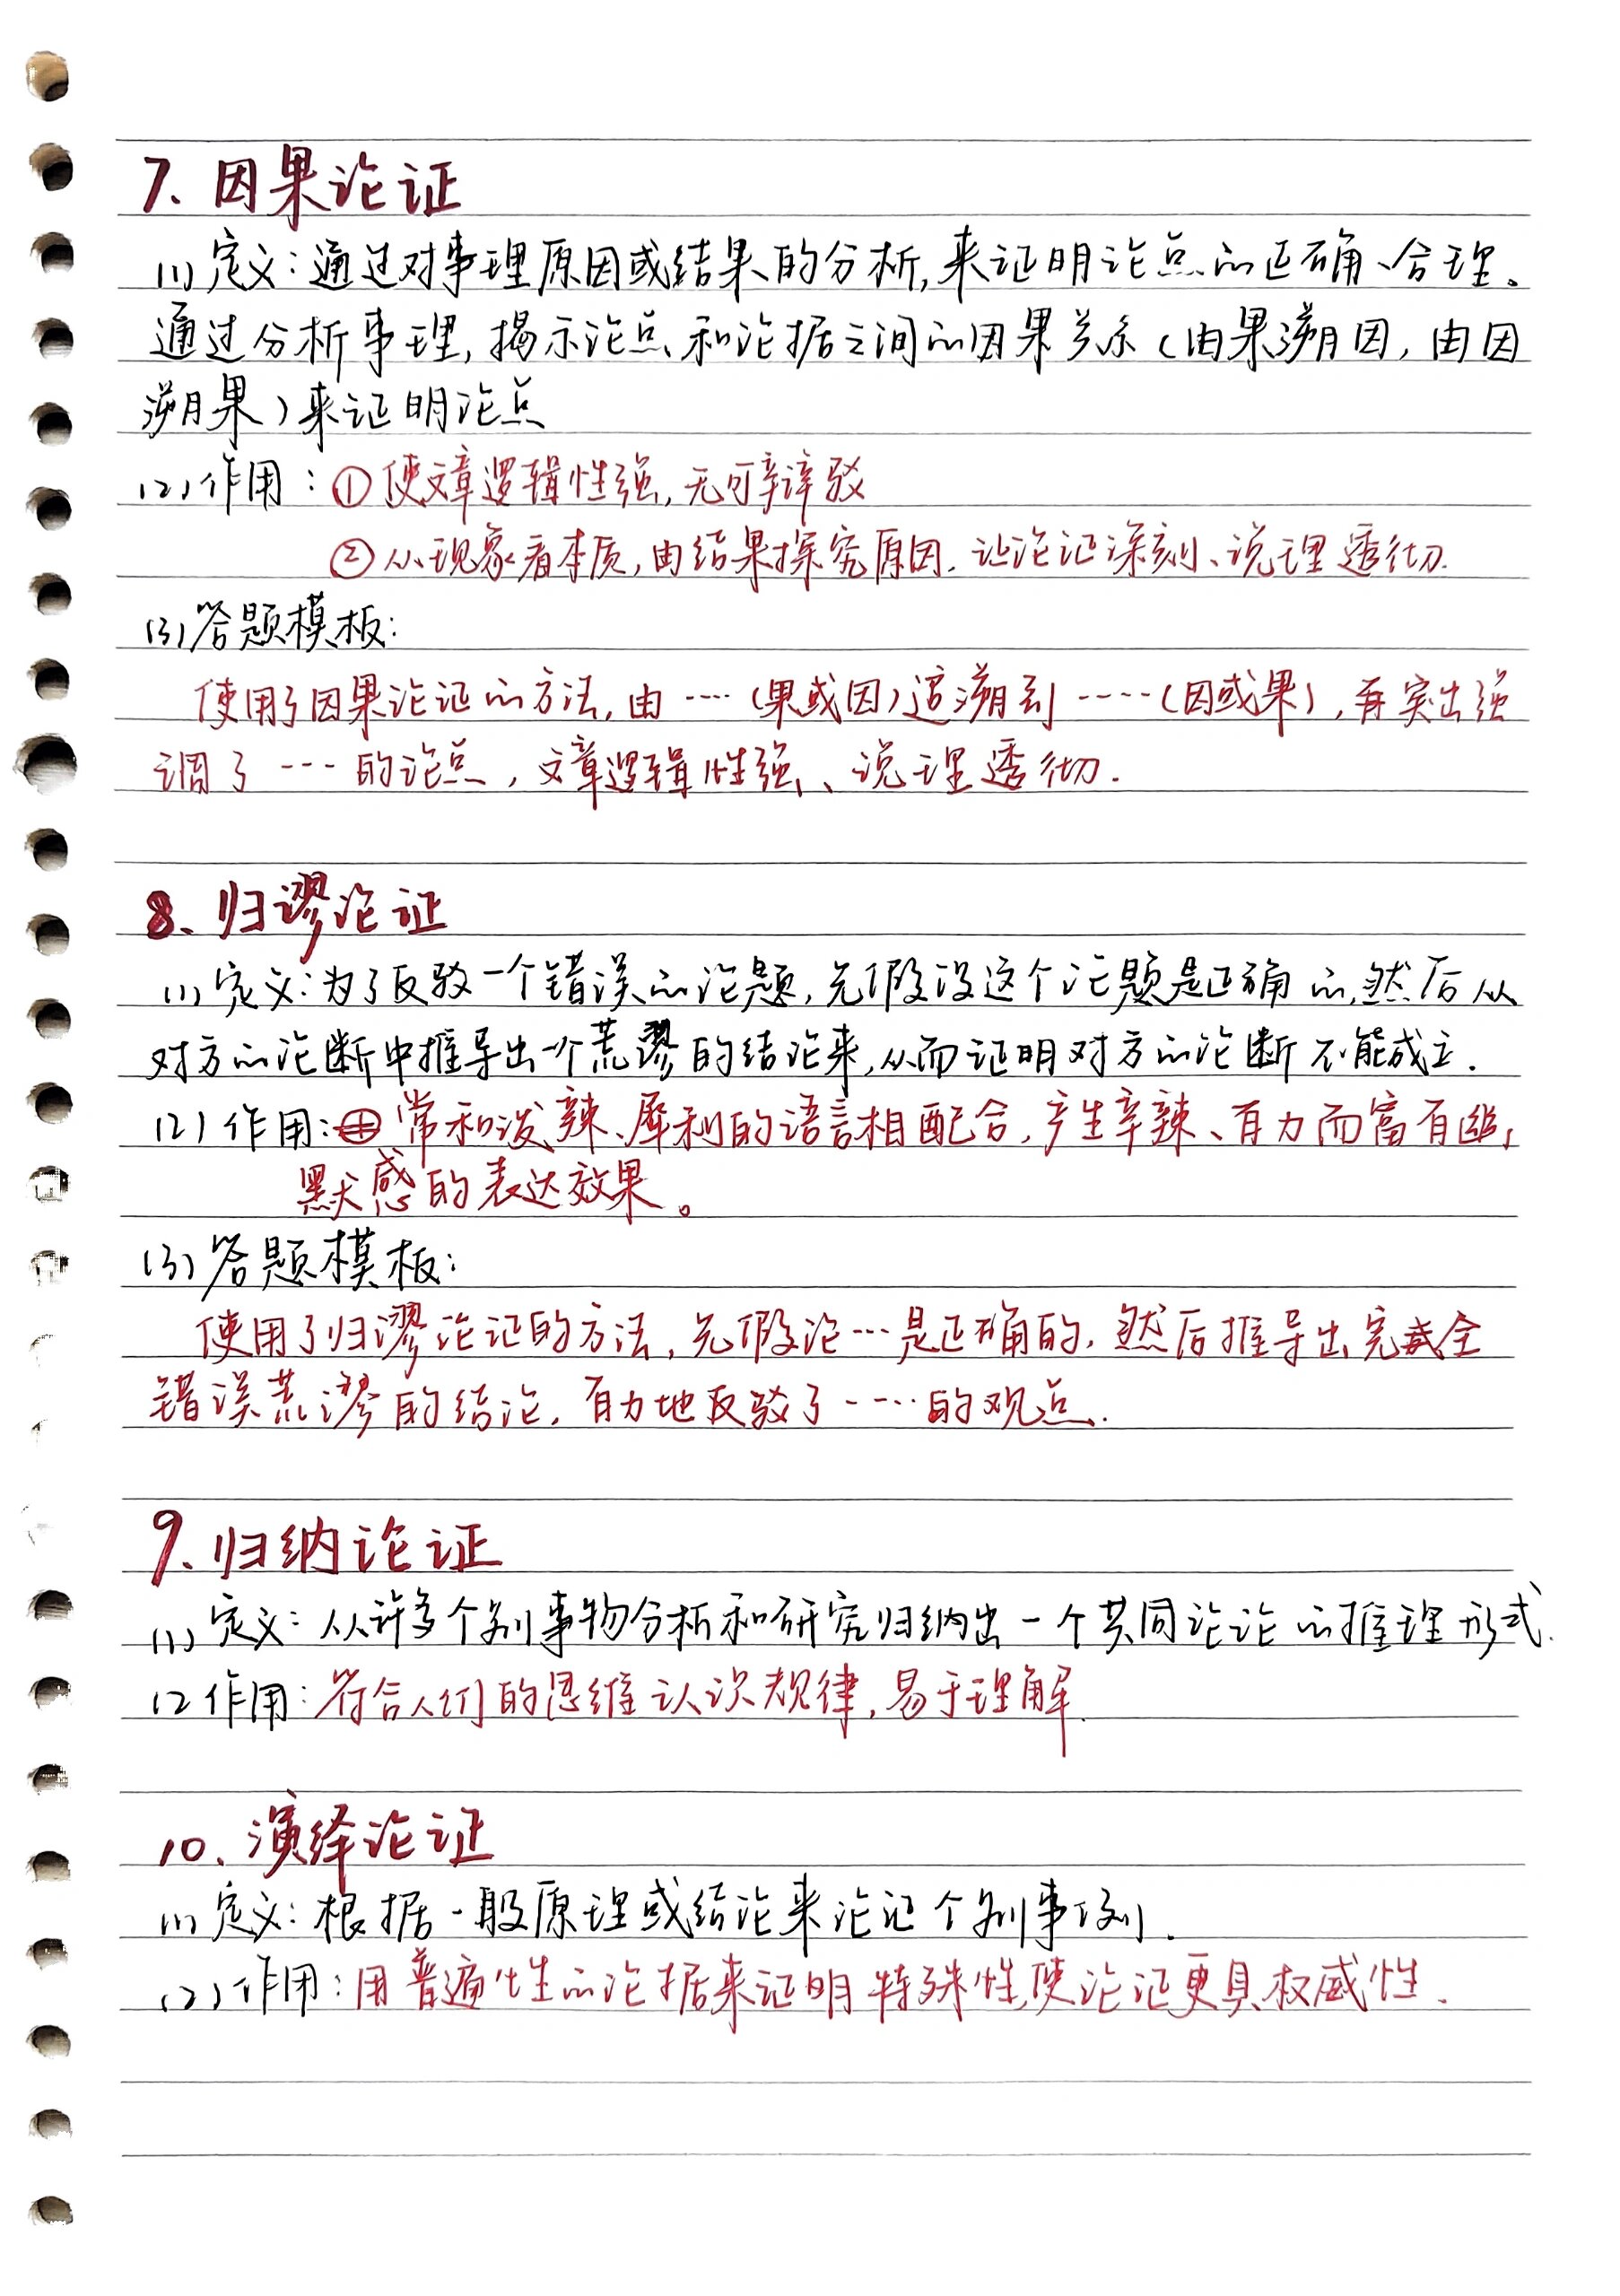 7、因果论证
(1)定义：通过对事理原因或结果的分析，来证明论点的正确、合理。
通过分析事理，揭示论点和论据之间的因果关系（由果溯因，由因
溯果）来证明论点
(2)作用：①使文章逻辑性强，无可辩驳
②从现象看本质，由结果探究原因．让论证深刻、说理透彻．
(3)答题模板：
使用了因果论证的方法，由……（果或因）追溯到……（因或果），再突出强
调了……的论点，文章逻辑性强、说理透彻．
8、归谬论证
(1)定义：为了反驳一个错误的论题，先假设这个论题是正确的，然后从
对方的论断中推导出一个荒谬的结论来，从而证明对方的论断不能成立．
(2)作用：常和泼辣、犀利的语言相配合，产生辛辣、有力而富有幽
默感的表达效果。
(3)答题模板：
使用了归谬论证的方法，先假论…是正确的，然后推导出完全
错误荒谬的结论，有力地反驳了……的观点．
9、归纳论证
(1)定义：从许多个别事物分析和研究归纳出一个共同论论的推理形式．
(2作用：符合人们的思维认识规律，易于理解．
10、演绎论证
(1)定义：根据一般原理或结论来论证个别事例．
(2)作用：用普遍性的论据来证明特殊性，使论证更具权威性．